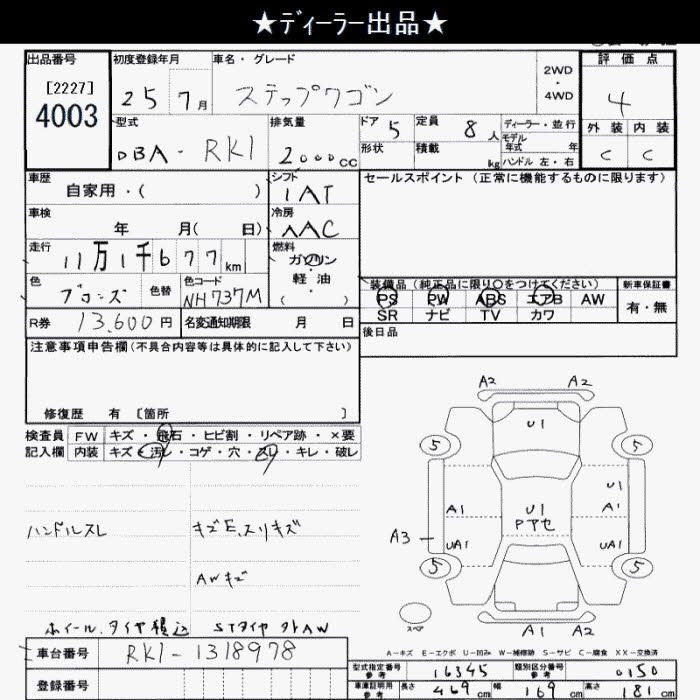 ★ディーラー出品★
出品番号 初度登録年月 車名・グレード 2WD ・ 4WD 評価点
[2227] 4003 25 7月 ステップワゴン 4
型式 排気量 ドア 5 定員 8人 ディーラー・並行 外装 内装
モデル年式 年
DBA-RK1 2000cc 形状 積載 kg ハンドル 左・右 C C
車歴 シフト セールスポイント(正常に機能するものに限ります)
自家用・( ) IAT
車検 冷房
年 月( 日) AAC
走行 燃料
11万1千677km ガソリン・軽油・( )
色 色替 色コード 装備品(純正品に限り○をつけてください) 新車保証書
NH737M PS PW ABS エアB AW 有・無
SR ナビ TV カワ
R券 13,600円 名変通知期限 月 日 後日品
注意事項申告欄(不具合内容等は具体的に記入して下さい)
修復歴 有 [箇所 ]
検査員 FW キズ・飛石・ヒビ割・リペア跡・×要
記入欄 内装 キズ・汚レ・コゲ・穴・スレ・キレ・破レ
A2 A2
U1
5 5
U1
A1 U1 A1
Pヤセ
ハンドルスレ キズE、スリキズ
A3 UA1 UA1
AWキズ
5 5
スペア
ホイール、タイヤ積込 STタイヤ外AW
A1 A2
A-キズ E-エクボ U-凹み W-補修跡 S-サビ C-腐食 XX-交換済
車台番号 RK1-1318978
型式指定番号 参考 16345 類別区分番号 参考 0150
登録番号
車庫証明用 参考 長さ 469cm 幅 169cm 高さ 181cm